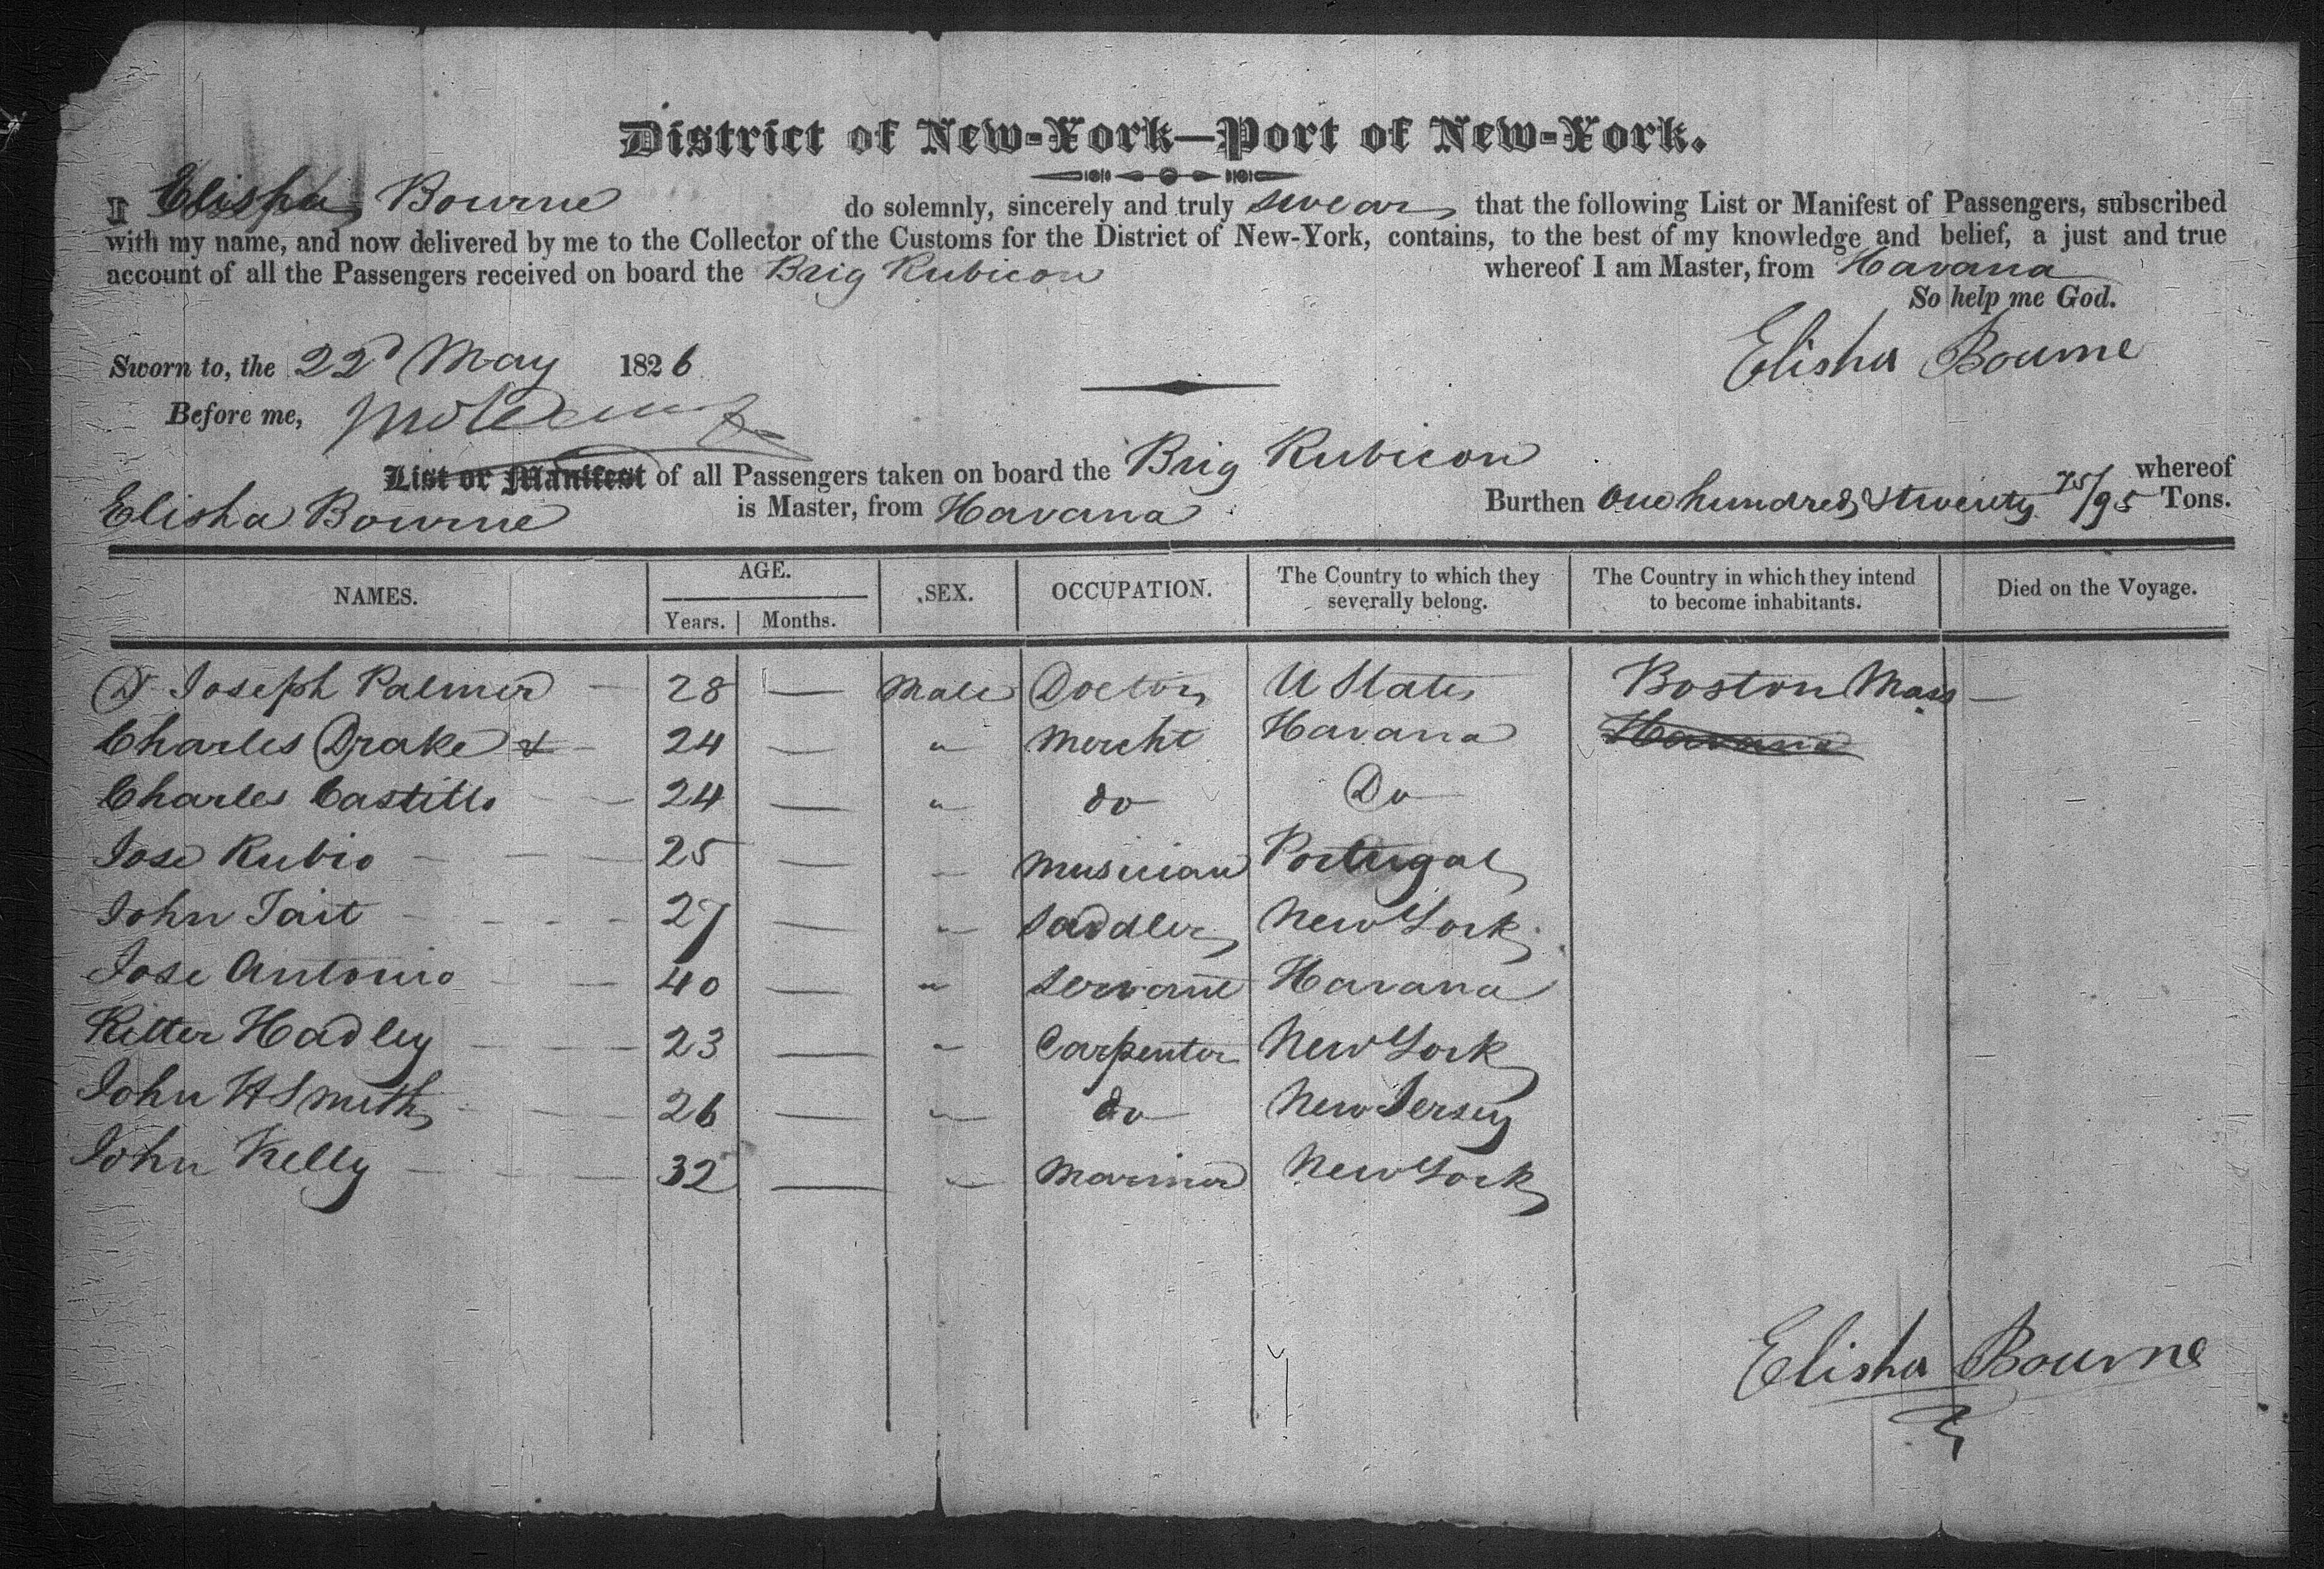 District of New-York—Port of New-York.
I Elisha Bourne do solemnly, sincerely and truly swear that the following List or Manifest of Passengers, subscribed
with my name, and now delivered by me to the Collector of the Customs for the District of New-York, contains, to the best of my knowledge and belief, a just and true
account of all the Passengers received on board the Brig Rubicon whereof I am Master, from Havana
So help me God.
Sworn to, the 22d May 1826 Elisha Bourne
Before me,
List or Manifest of all Passengers taken on board the Brig Rubicon whereof
Elisha Bourne is Master, from Havana Burthen One hundred & twenty 75/95 Tons.
NAMES. AGE. Years. Months. SEX. OCCUPATION. The Country to which they severally belong. The Country in which they intend to become inhabitants. Died on the Voyage.
Dr Joseph Palmer 28 — Male Doctor U States Boston Mass —
Charles Drake & 24 — " Mercht Havana Havana
Charles Castillo 24 — " do Do
Jose Rubio 25 — " Musician Portugal
John Tait 27 — " Saddler New York
Jose Antonio 40 — " Servant Havana
Ritter Hadley 23 — " Carpenter New York
John H Smith 26 — " do New Jersey
John Kelly 32 — " Mariner New York
Elisha Bourne